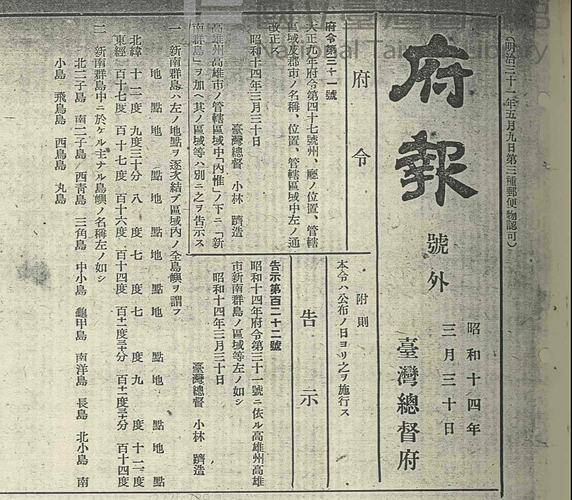 (明治三十一年五月九日第三種郵便物認可)
府報 號外
昭和十四年
三月三十日
臺灣總督府
府令
府令第三十一號
大正九年府令第四十七號州、廳ノ位置、管轄
區域及郡市ノ名稱、位置、管轄區域中左ノ通
改正ス
昭和十四年三月三十日
臺灣總督 小林 躋造
高雄州高雄市ノ管轄區域中「內惟」ノ下ニ「新
南群島」ヲ加ヘ其ノ區域等ハ別ニ之ヲ告示ス
附則
本令ハ公布ノ日ヨリ之ヲ施行ス
告示
告示第百二十二號
昭和十四年府令第三十一號ニ依ル高雄州高雄
市新南群島ノ區域等左ノ如シ
昭和十四年三月三十日
臺灣總督 小林 躋造
一 新南群島ハ左ノ地點ヲ逐次結ブ區域內ノ全島嶼ヲ謂フ
地點 地點 地點 地點 地點 地點 地點
北緯 十二度 九度三十分 八度 七度 七度 九度 十二度
東經 百十七度 百十七度 百十六度 百十四度 百十一度三十分 百十一度三十分 百十四度
二 新南群島中ニ於ケル主ナル島嶼ノ名稱左ノ如シ
北二子島 南二子島 西青島 三角島 中小島 龜甲島 南洋島 長島 北小島 南
小島 飛鳥島 西鳥島 丸島